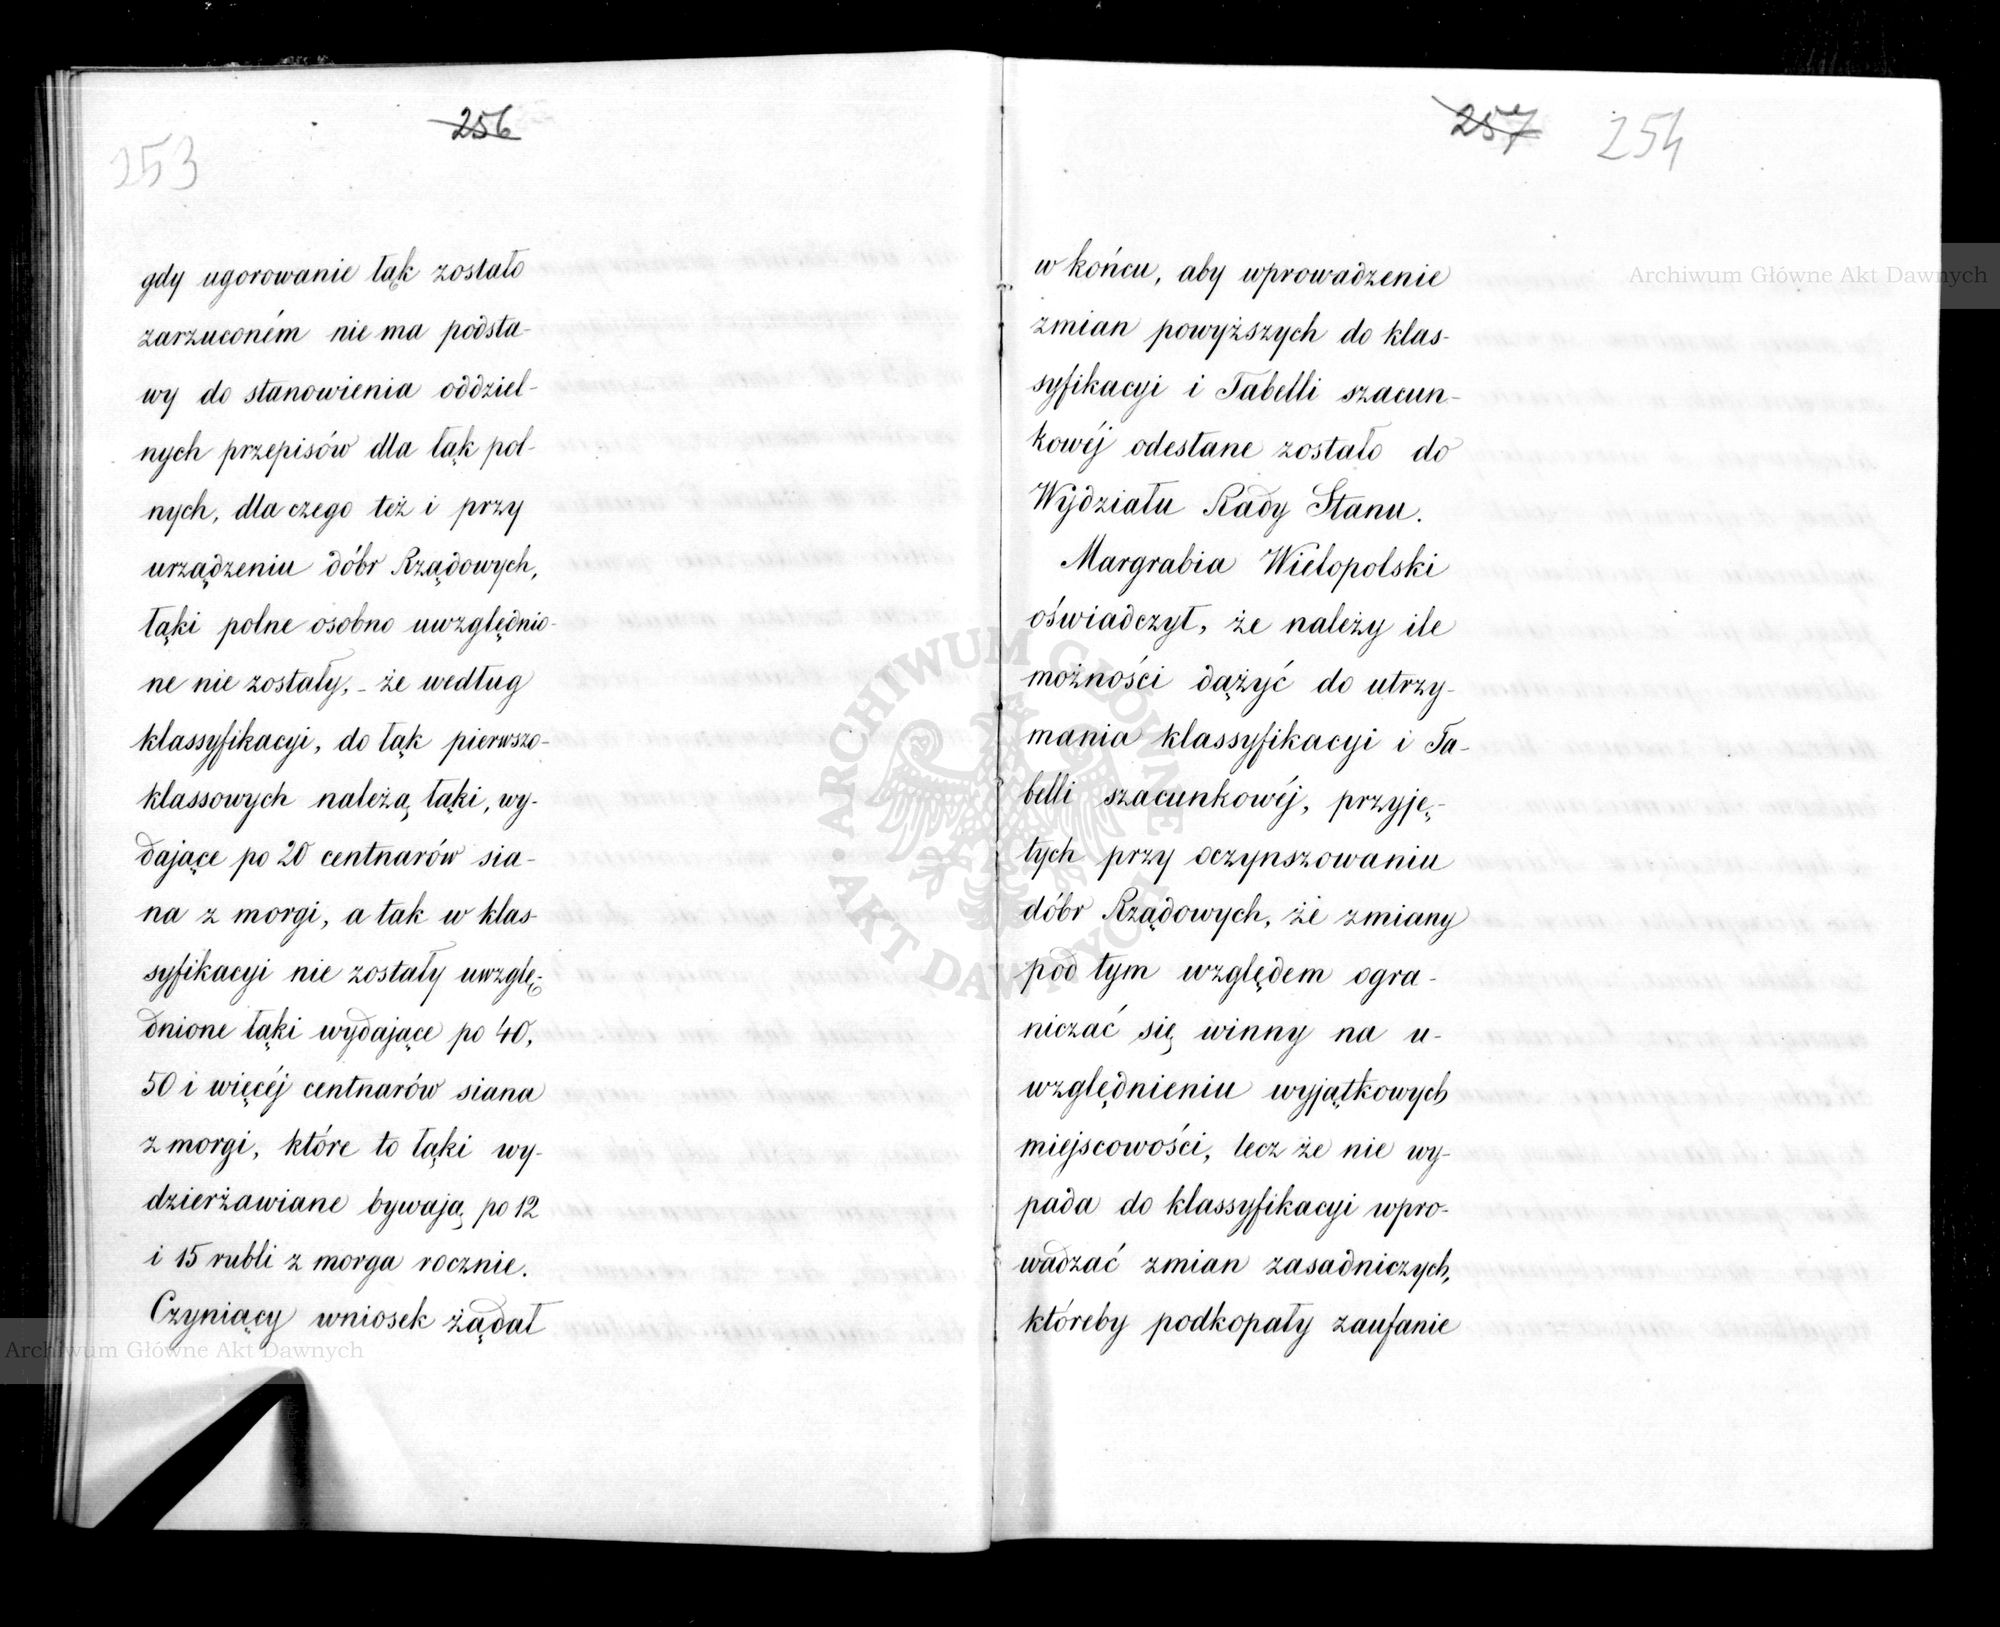 253
256
gdy ugorowanie łąk zostało
zarzuconém nie ma podsta-
wy do stanowienia oddziel-
nych przepisów dla łąk pol-
nych, dla czego też i przy
urządzeniu dóbr Rządowych,
łąki polne osobno uwzględnio-
ne nie zostały, - że według
klassyfikacyi, do łąk pierwszo-
klassowych należą łąki, wy-
dające po 20 centnarów sia-
na z morgi, a tak w klas-
syfikacyi nie zostały uwzglę-
dnione łąki wydające po 40,
50 i więcéj centnarów siana
z morgi, które to łąki wy-
dzierżawiane bywają po 12
i 15 rubli z morga rocznie.
Czyniący wniosek żądał
257 254
w końcu, aby wprowadzenie
zmian powyższych do klas-
syfikacyi i Tabelli szacun-
kowéj odesłane zostało do
Wydziału Rady Stanu.
Margrabia Wielopolski
oświadczył, że należy ile
możności dążyć do utrzy-
mania klassyfikacyi i Ta-
belli szacunkowéj, przyję-
tych przy oczynszowaniu
dóbr Rządowych, że zmiany
pod tym względem ogra-
niczać się winny na u-
względnieniu wyjątkowych
miejscowości, lecz że nie wy-
pada do klassyfikacyi wpro-
wadzać zmian zasadniczych,
któreby podkopały zaufanie
Archiwum Główne Akt Dawnych
Archiwum Główne Akt Dawnych
ARCHIWUM GŁÓWNE • AKT DAWNYCH •